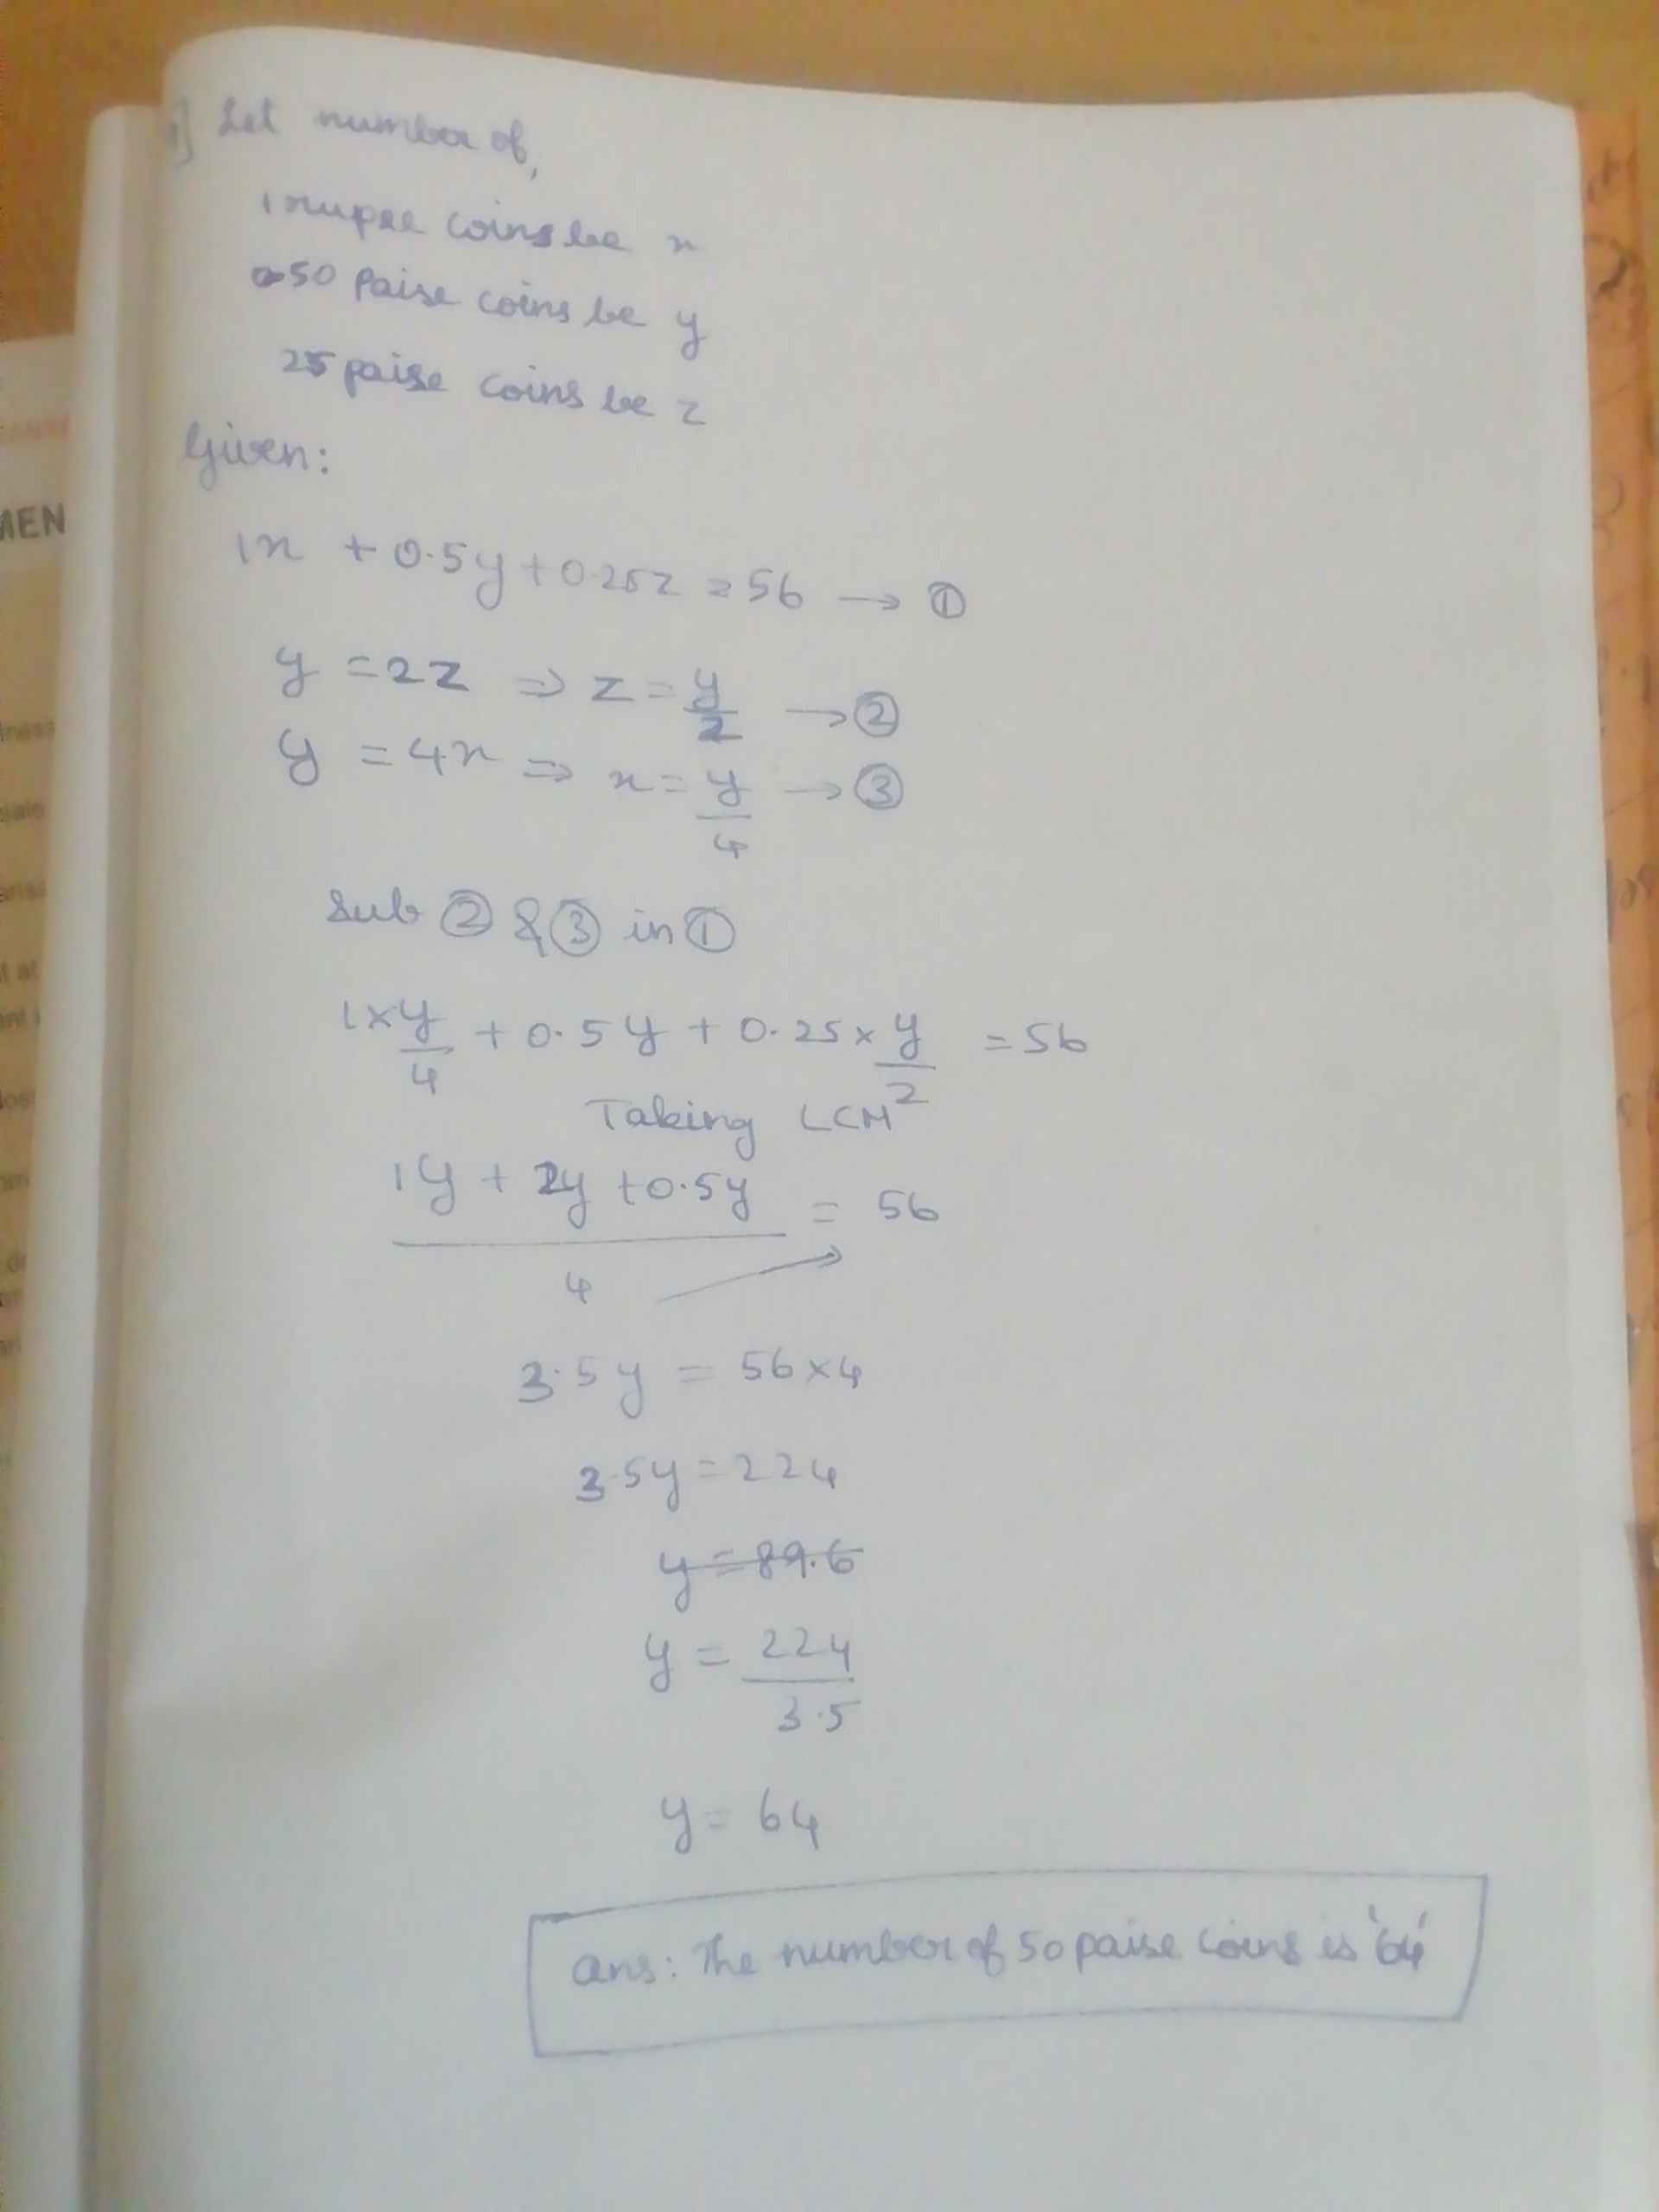 1] Let number of,
1 rupee coins be x
50 Paise coins be y
25 paise coins be z
Given:
1x + 0.5y + 0.25z = 56 → ①
y = 2z ⇒ z = y/2 → ②
y = 4x ⇒ x = y/4 → ③
Sub ② & ③ in ①
1 × y/4 + 0.5y + 0.25 × y/2 = 56
Taking LCM
1y + 2y + 0.5y / 4 = 56
3.5y = 56 × 4
3.5y = 224
y = 89.6
y = 224/3.5
y = 64
ans: The number of 50 paise coins is '64'
MEN